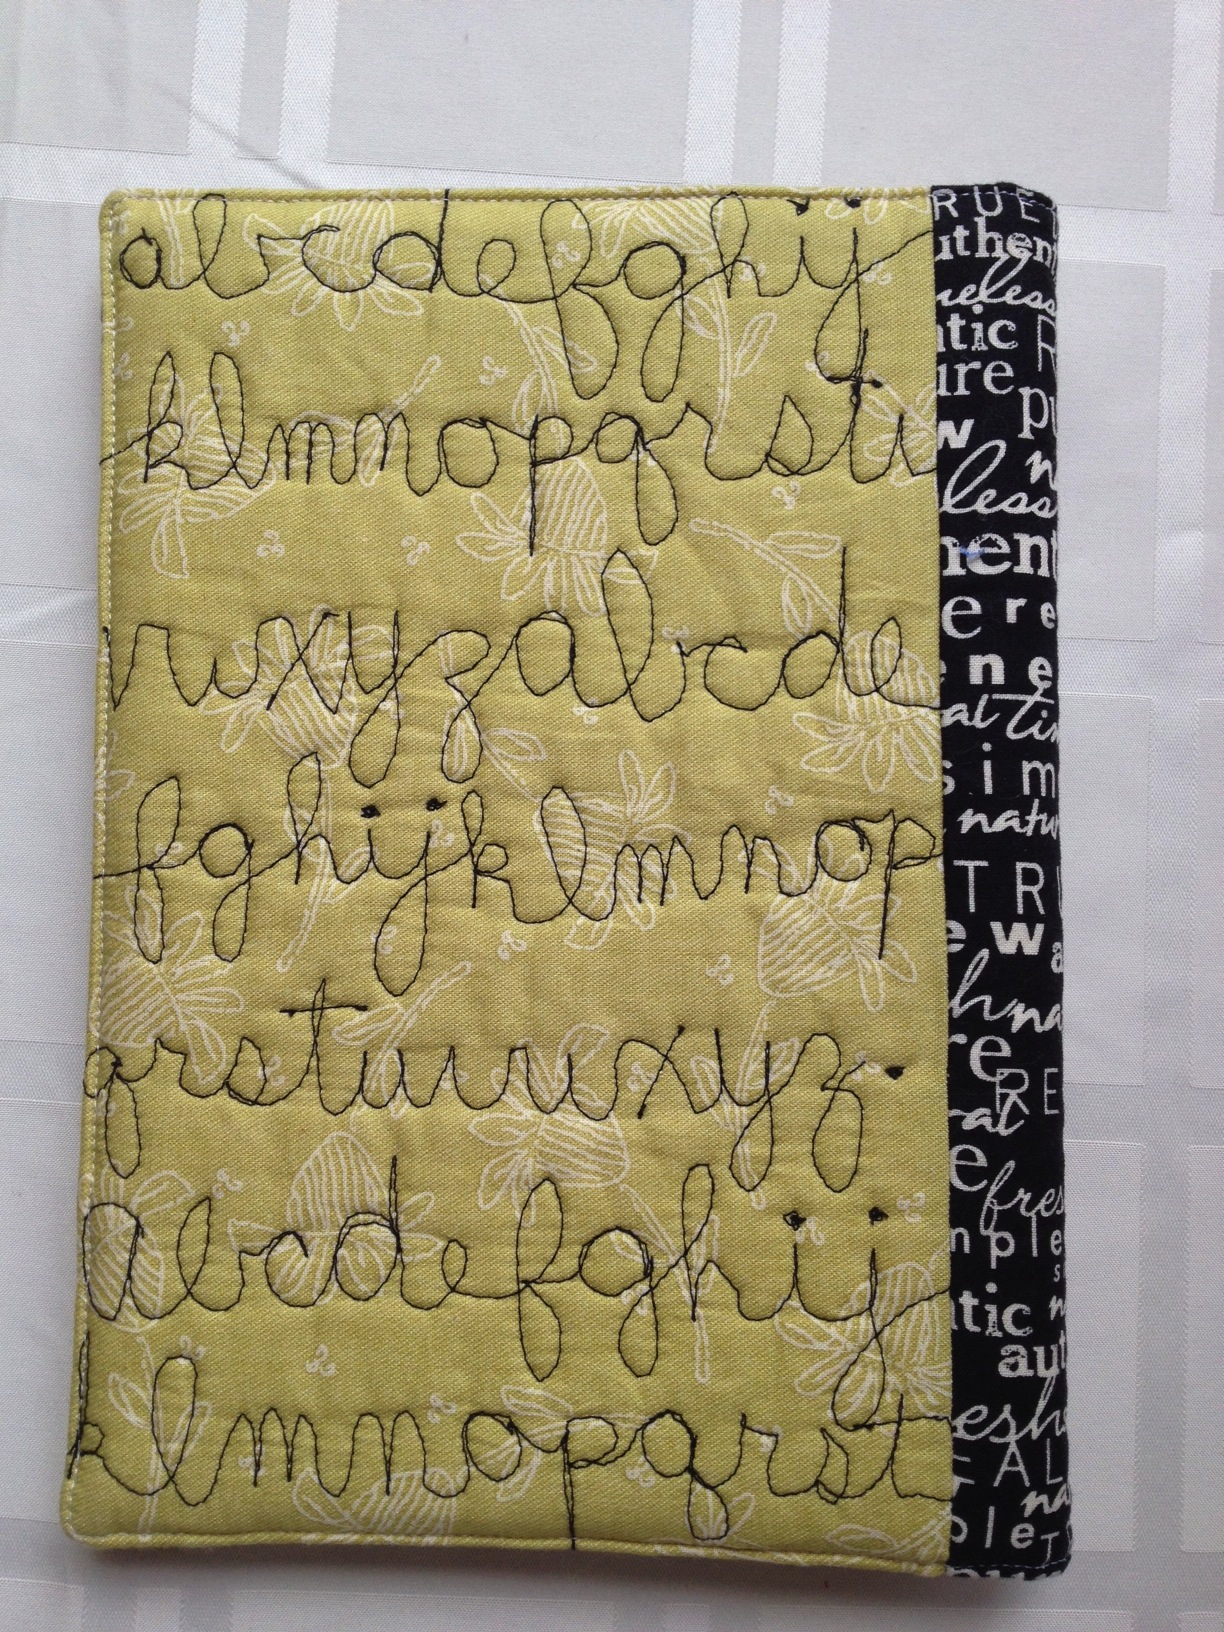 abcdefghij
klmnopqrstu
vwxyzabcde
fghijklmnop
qrstuvwxyz.
abcdefghij
klmnopqrst
RUE
uthent
eless
tic R
ure
pu
w n
less
ment
e re
ene
al tim
sim
natu
TRU
ew a
h na
re
RE
ral
e
fres
mple
s
tic n
aut
eshe
EAL
na
ple T